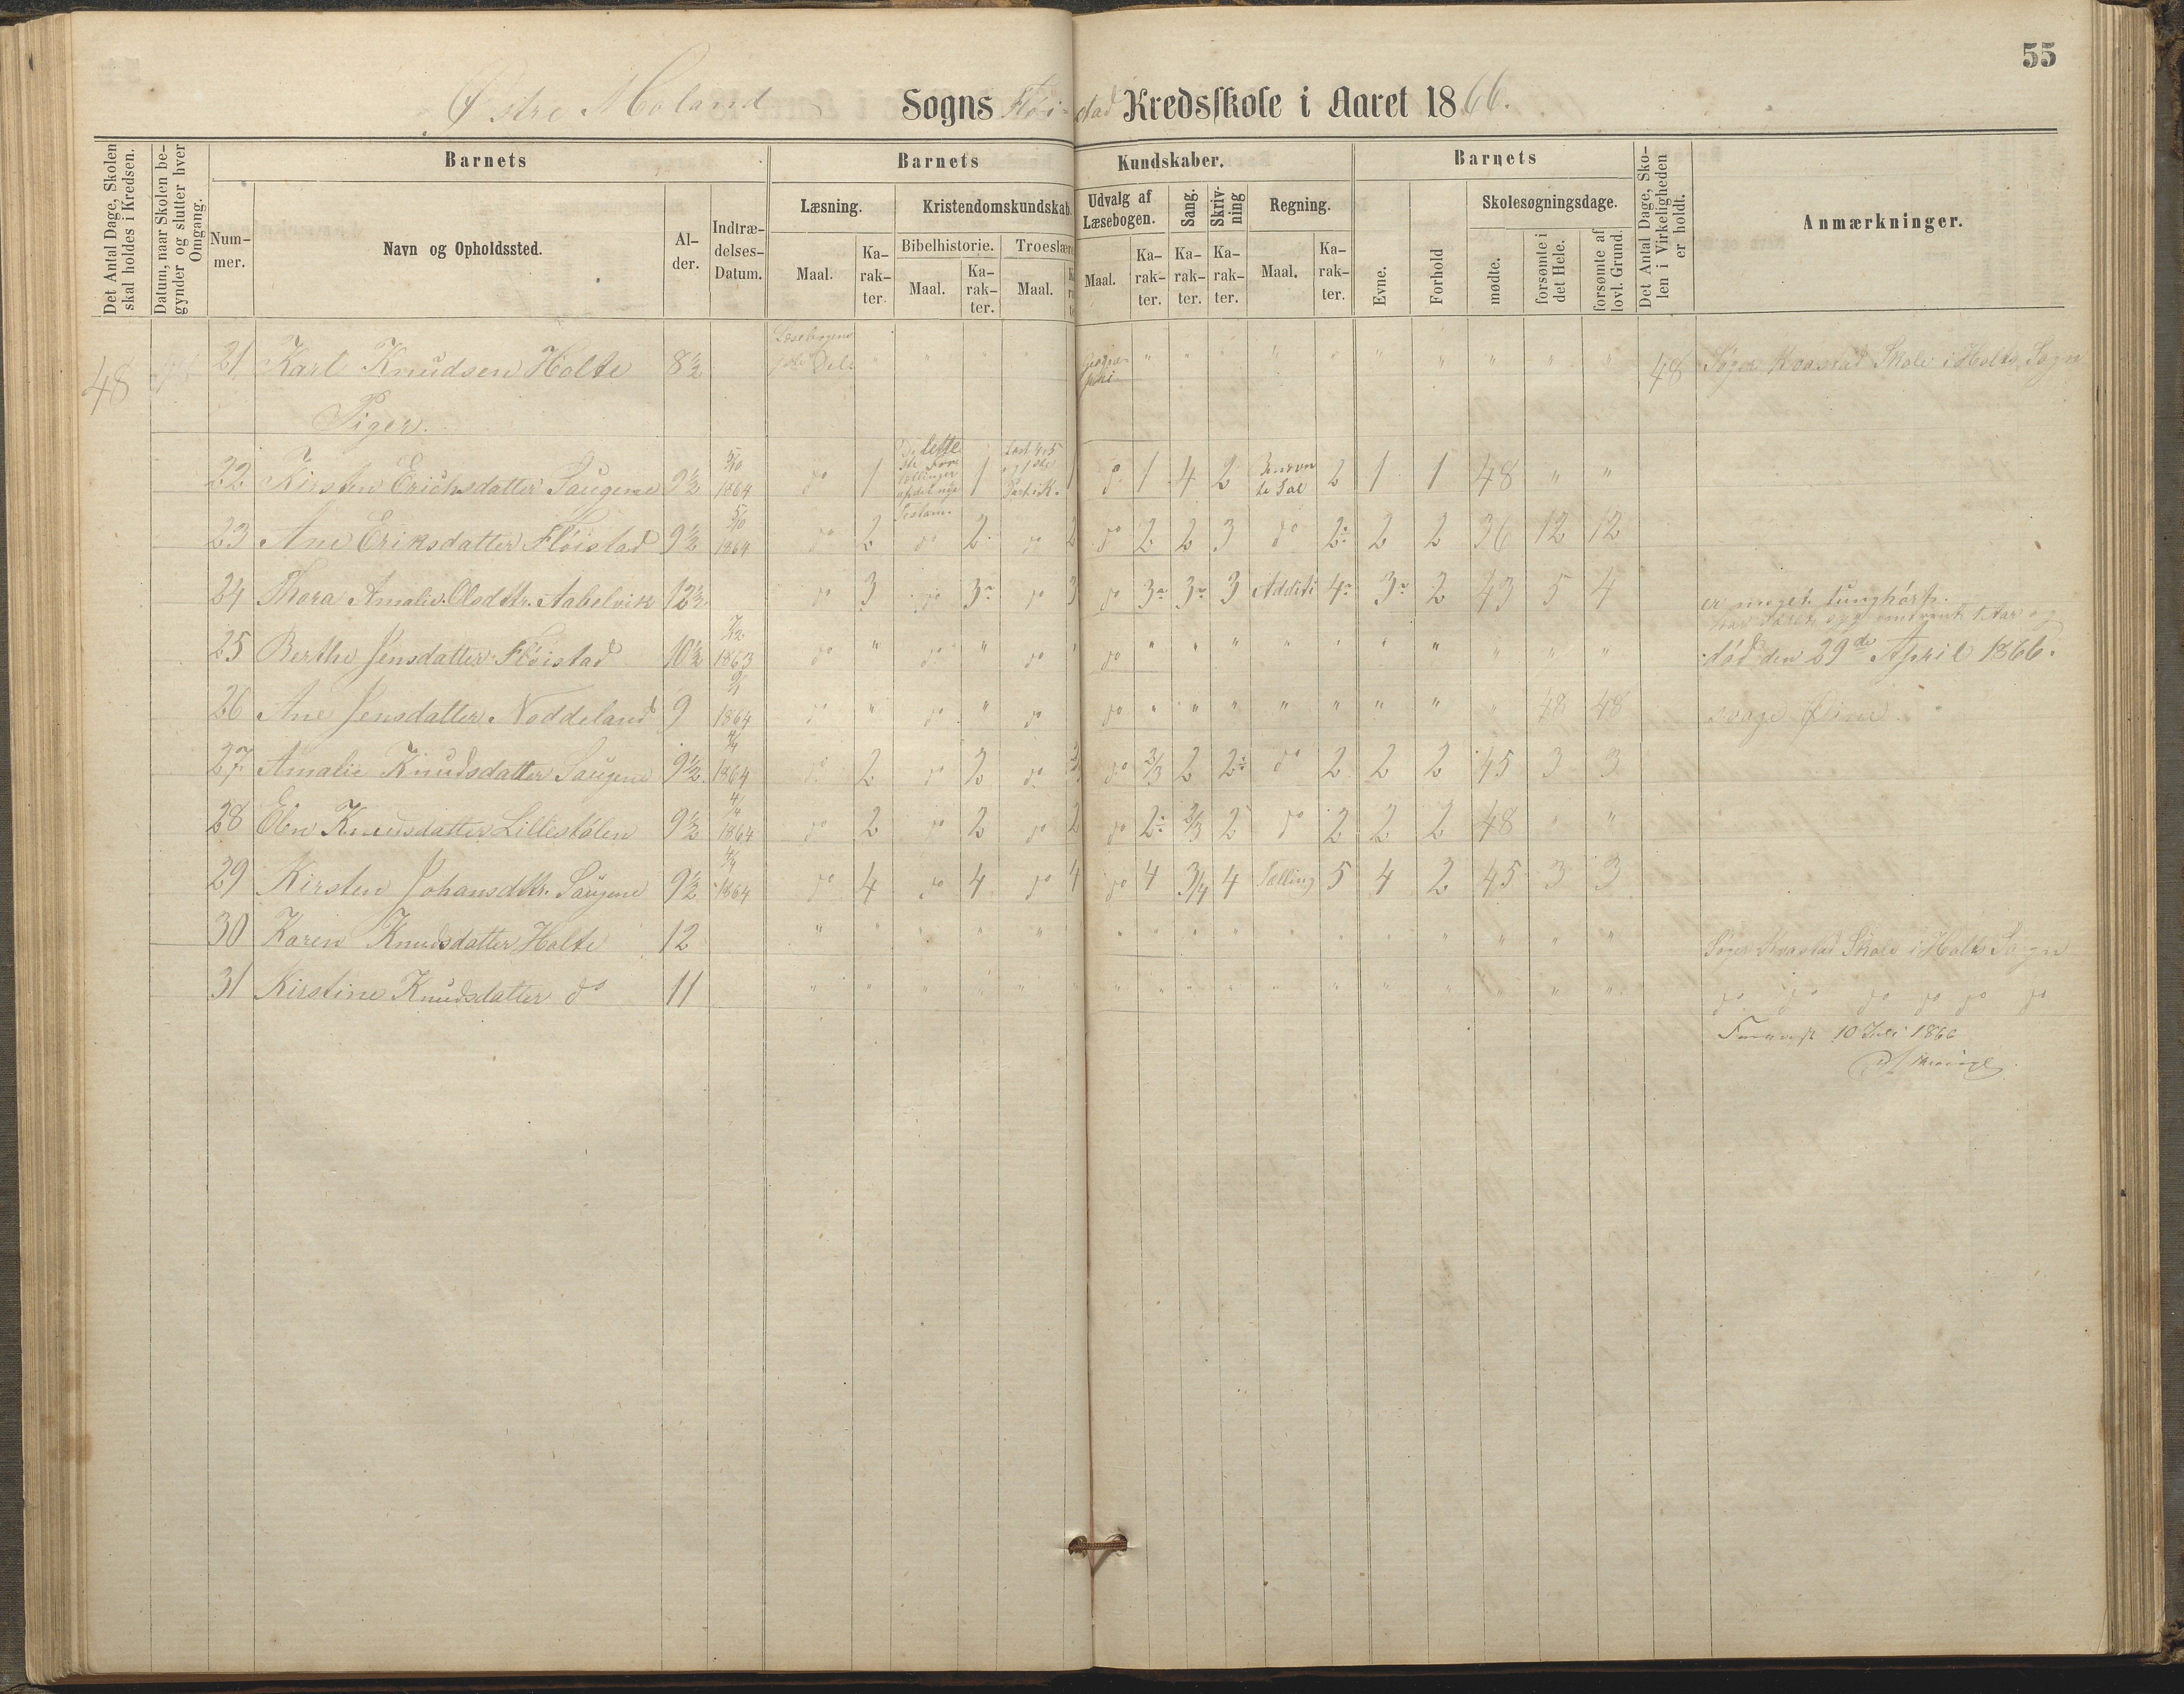 55
Østre Moland Sogns Flöistad Kredsskole i Aaret 1866.
Det Antal Dage, Skolen skal holdes i Kredsen.
Datum, naar Skolen begynder og slutter hver Omgang.
Barnets
Nummer.
Navn og Opholdssted.
Alder.
Indtrædelses-Datum.
Barnets Kundskaber.
Læsning.
Maal.
Karakter.
Kristendomskundskab.
Bibelhistorie.
Maal.
Karakter.
Troeslære
Maal.
Udvalg af Læsebogen.
Maal.
Karakter.
Sang.
Karakter.
Skrivning
Karakter.
Regning.
Maal.
Karakter.
Barnets
Evne.
Forhold
Skolesøgningsdage.
mødte.
forsømte i det Hele.
forsømte af lovl. Grund.
Det Antal Dage, Skolen i Virkeligheden er holdt.
Anmærkninger.
48 21 Karl Knudsen Holte 8½ Læsebogens Dele Geographi " " " " " " " " " " 48 Søger Kvastad Skole i Holts Sogn
Piger.
22 Kirsten Erichsdatter Saugene 9½ 5/10 1864 do 1 1 1 do 1 4 2 2 1 1 48 " "
23 Ane Eriksdatter Flöistad 9½ 5/10 1864 do 2 do 2 do 2 do 2 2 3 do 2÷ 2 2 36 12 12
24 Thora Amalie Olsdttr. Aabelvik 12½ do 3 do 3 do 3 do 3 3 3 Additi 4 3 2 43 5 4 er meget tunghört.
25 Berthe Jensdatter Flöistad 10½ 1863 do " do " do " do " " " " " " " " " " död den 29de April 1866.
26 Ane Jensdatter Noddeland 9 1864 do " do " do do " " " " " " " " 48 48 svage Øine.
27 Amalie Knudsdatter Saugene 9½ 1864 do 2 do 2 do do 2/3 2 2÷ do 2 2 2 45 3 3
28 Elen Knudsdatter Lillestölen 9½ 4/4 1864 do 2 do 2 do 2 do 2÷ 2/3 2 do 2 2 2 48 " "
29 Kirsten Johansdttr. Saugene 9½ 1864 do 4 do 4 do 4 do 4 3/4 4 Tælling 5 4 2 45 3 3
30 Karen Knudsdatter Holte 12 " " " " " " " " " " " " " " " " " Søger Kvastad Skole i Holts Sogn
31 Kirstine Knudsdatter do 11 " " " " " " " " " " " " " " " " " do do do do do do
10 Juli 1866